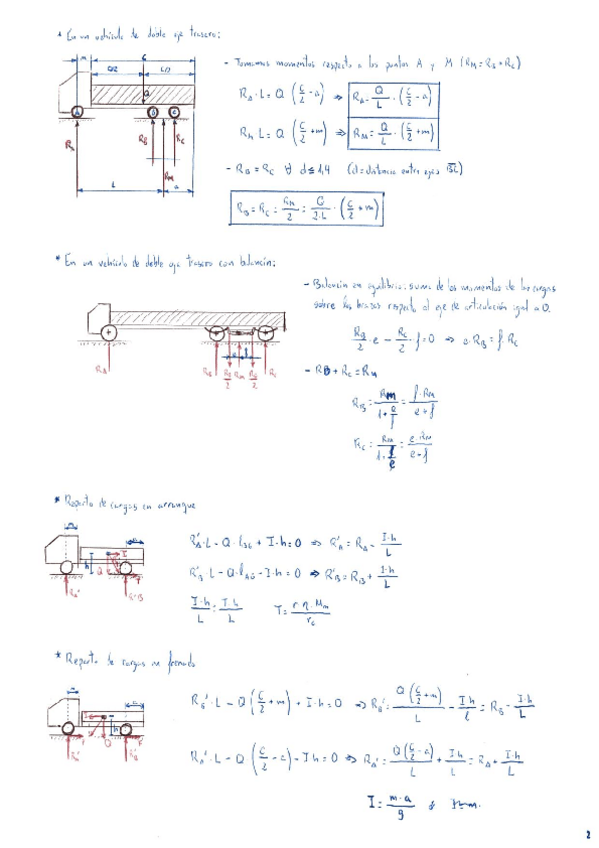 * En un vehículo de doble eje trasero:
m C
C/2 C/2
Q
A B C
R_A R_B R_C
R_M
L a
- Tomamos momentos respecto a los puntos A y M (R_M = R_B + R_C)
R_A · L = Q (C/2 - a) ⇒ R_A = Q/L · (C/2 - a)
R_M L = Q (C/2 + m) ⇒ R_M = Q/L · (C/2 + m)
- R_B = R_C ∀ d ≤ 1,4 (d = distancia entre ejes BC)
R_B = R_C = R_M/2 = Q/2·L · (C/2 + m)
* En un vehículo de doble eje trasero con balancín:
e f
R_A R_B R_B/2 R_M R_C/2 R_C
- Balancín en equilibrio: suma de los momentos de las cargas
sobre los brazos respecto al eje de articulación igual a 0.
R_B/2 · e - R_C/2 · f = 0 ⇒ e · R_B = f · R_C
- R_B + R_C = R_M
R_B = R_M/(1 + e/f) = f · R_M/(e + f)
R_C = R_M/(1 + f/e) = e · R_M/(e + f)
* Reparto de cargas en arranque
m a
I
h
Q T
R_A' R'_B
R'_A · L - Q · l_3G + I · h = 0 ⇒ R'_A = R_A - I·h/L
R'_B · L - Q · l_AG - I · h = 0 ⇒ R'_B = R_B + I·h/L
I·h/L = T·h/L T = r · η · M_m/r_c
* Reparto de cargas en frenado
m a
I G
h
F Q F
R_A' R_B'
R_B' · L - Q (C/2 + m) + I · h = 0 ⇒ R_B' = Q(C/2 + m)/L - I h/L = R_B - I·h/L
R_A' · L - Q (C/2 - a) - I h = 0 ⇒ R_A' = Q(C/2 - a)/L + I h/L = R_A + I·h/L
I = m·a/g
2